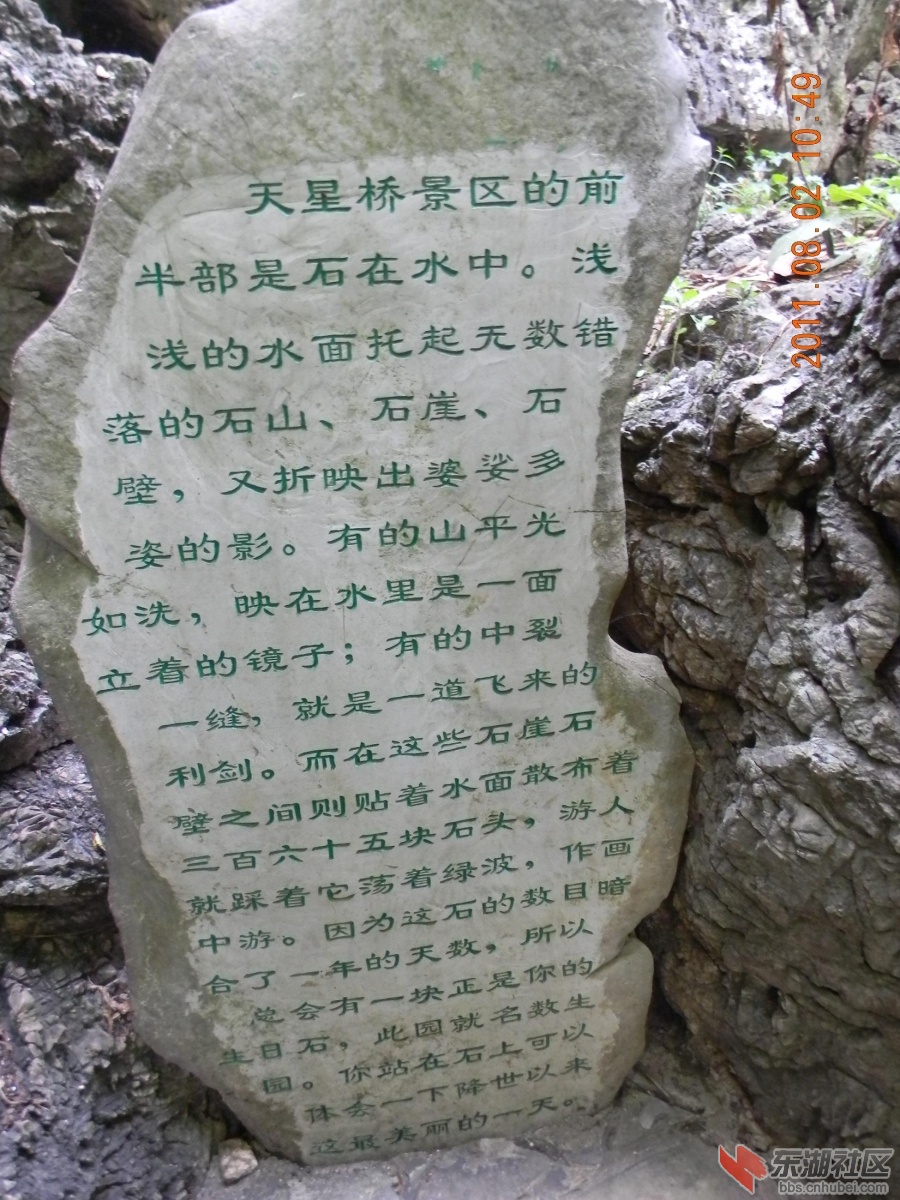 天星桥景区的前
半部是石在水中。浅
浅的水面托起无数错
落的石山、石崖、石
壁，又折映出婆娑多
姿的影。有的山平光
如洗，映在水里是一面
立着的镜子；有的中裂
一缝，就是一道飞来的
利剑。而在这些石崖石
壁之间则贴着水面散布着
三百六十五块石头，游人
就踩着它荡着绿波，作画
中游。因为这石的数目暗
合了一年的天数，所以
总会有一块正是你的
生日石，此园就名数生
园。你站在石上可以
体会一下降世以来
这最美丽的一天。
2011.08.02 10:49
东湖社区
bbs.cnhubei.com